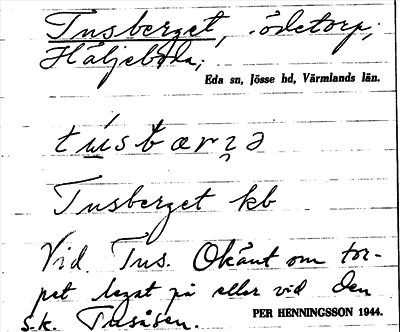 Tusberget, ödetorp;
Häljeboda;
Eda sn, Jösse hd, Värmlands län.
Tusberget kb
Vid Tus. Okänt om tor-
pet legat på eller vid den
s.k. Tusåsen.
PER HENNINGSSON 1944.